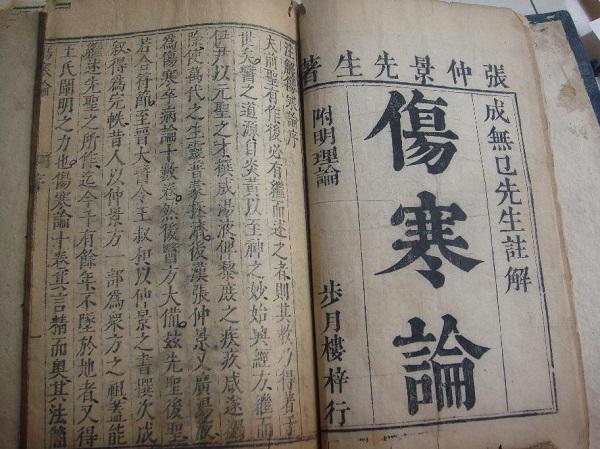 張仲景先生著
成無己先生註解
傷寒論
附明理論
步月樓梓行
註解傷寒論序
夫前聖有作後必有繼而述之者則其教乃得著于
世矣醫之道源自炎黃以至神之妙始興經方繼而
伊尹以元聖之才撰成湯液俾黎庶之疾疢咸遂蠲
除使萬代之生靈普蒙拯濟後漢張仲景又廣湯液
為傷寒卒病論十數卷然後醫方大備茲先聖後聖
若合符節至晉太醫令王叔和以仲景之書撰次成
敘得為完帙昔人以仲景方一部為眾方之祖蓋能
繼述先聖之所作迄今千有餘年不墜於地者又得
王氏闡明之力也傷寒論十卷其言精而奧其法簡
傷寒論